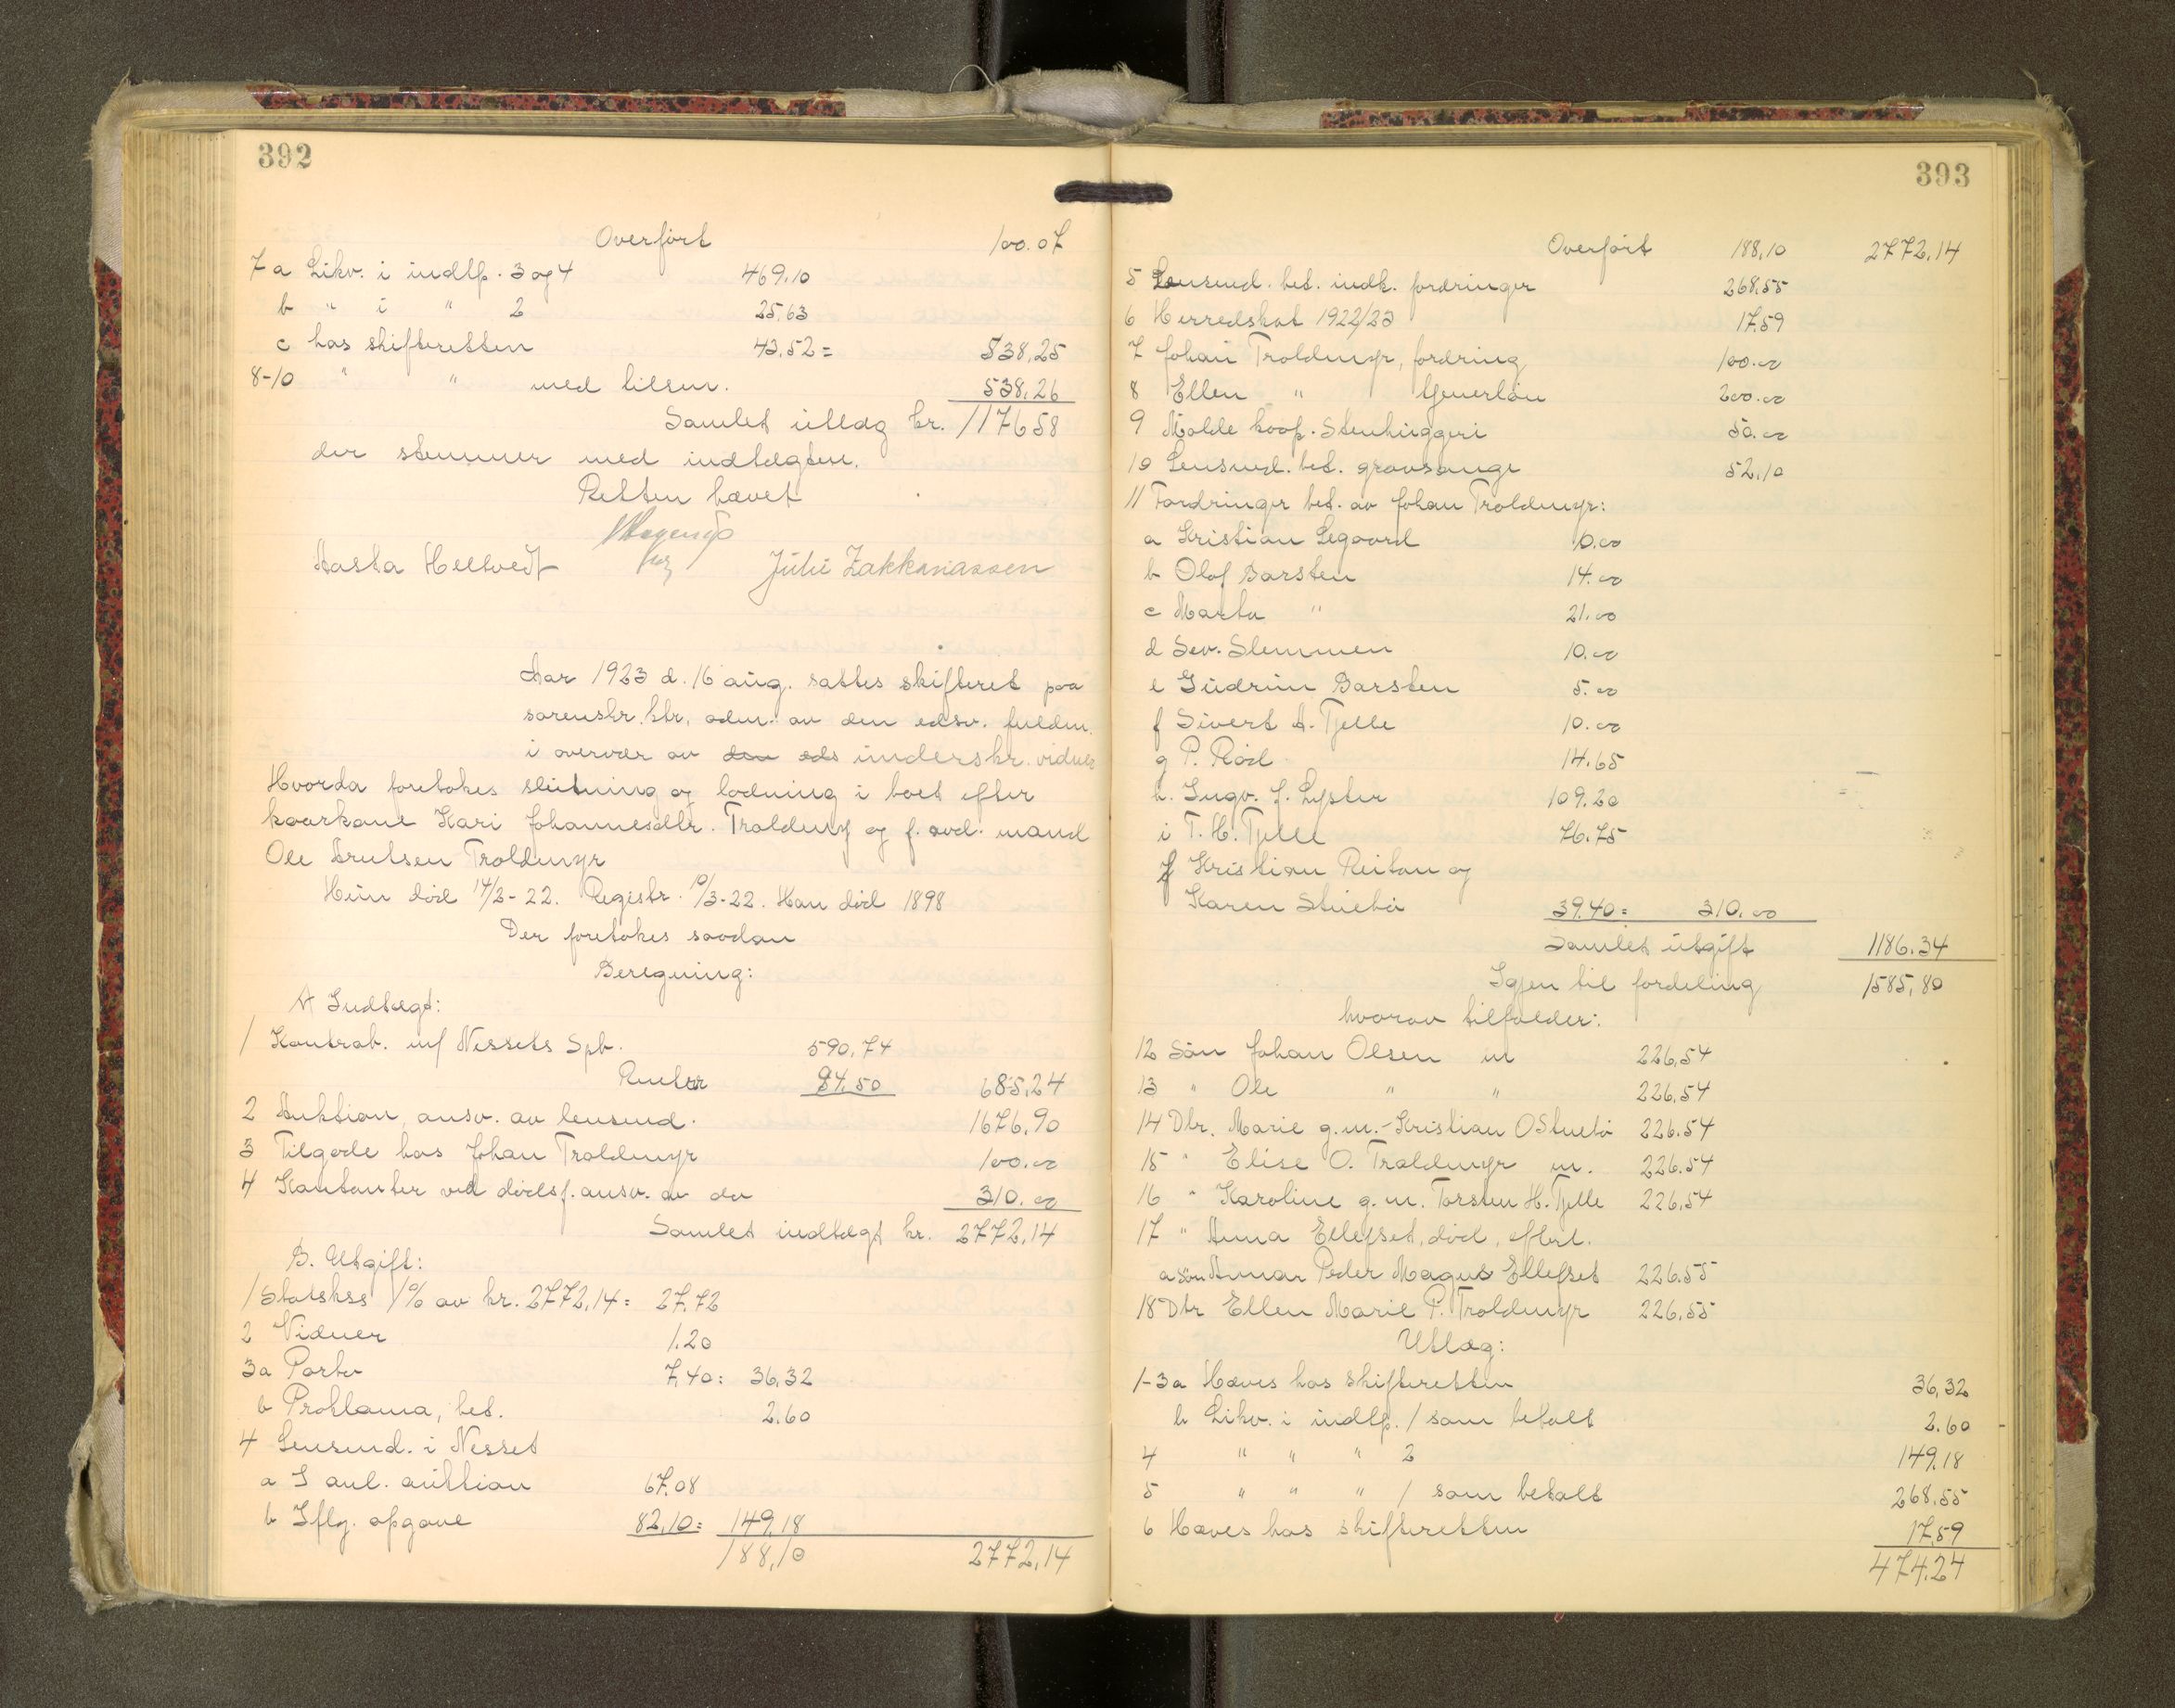 392
Overført 100.07
7 a Likv. i indtp. 3 og 4 469.10
b " i " 2 25.63
c hos skifteretten 43.52 = 538,25
8-10 " " med tilsm. 538,26
Samlet utlæg kr. 1176 58
der stemmer med indtægten.
Retten hævet
Aasta Heltvedt Julie Zakkariassen
Aar 1923 d. 16 aug. sattes skifteret paa
sorenskr. ktr. adm. av den edsv. fuldm.
i overvær av den eds underskr. vidner
Hvorda foretokes slutning og lodning i boet efter
kaarkone Kari Johannesdtr. Troldmyr og f. avd. mand
Ole Knutsen Troldmyr
Hun død 14/2-22. Registr. 10/3-22. Han død 1898
Der foretokes saadan
Beregning:
A Indtægt:
1 Kontrab. m/ Nessets Spb. 590,74
Renter 94.50 685,24
2 Auktion ansv. av lensmd. 1676,90
3 Tilgode hos Johan Troldmyr 100.00
4 Kontanter ved dødsf. ansv. av do 310.00
Samlet indtægt kr. 2772,14
B. Utgift:
1 Statskss 1% av kr. 2772,14 = 27,72
2 Vidner 1.20
3a Porto 7,40 = 36,32
b Proklama, bet. 2.60
4 Lensmd. i Nesset
a I anl. auktion 67.08
b Iflg. opgave 82,10 = 149,18
188,10 2772,14
393
Overført 188,10 2772,14
5 Lensmd. bet. indk. fordringer 268,55
6 Herredskat 1922/23 17.59
7 Johan Troldmyr, fordring 100.00
8 Ellen " tjenerløn 200.00
9 Molde koop. Stenhuggeri 50.00
10 Lensmd. bet. gravsange 52,10
11 Fordringer bet. av Johan Troldmyr:
a Kristian Legaard 10.00
b Olaf Barsten 14.00
c Marta " 21.00
d Sev. Slemmen 10.00
e Gudrun Barsten 5.00
f Sivert A. Tjelle 10.00
g P. Rød 14.65
h. Ingv. J. Lyster 109.20
i T. H. Tjelle 76.75
j Kristian Reitan og
Karen Stuebø 39.40 = 310.00
Samlet utgift 1186.34
Igjen til fordeling 1585,80
hvorav tilfalder:
12 Søn Johan Olsen m 226,54
13 " Ole " " 226,54
14 Dtr. Marie g.m. Kristian O Stuebø 226.54
15 " Elise O. Troldmyr m. 226.54
16 " Karoline g.m. Torsten H. Tjelle 226,54
17 " Anna Ellefset, død, eftrl.
a Søn Annar Peder Magnus Ellefset 226.55
18 Dtr Ellen Marie P. Troldmyr 226,55
Utlæg:
1-3a Hæves hos skifteretten 36,32
b Likv. i indtp. 1 som betalt 2.60
4 " " " 2 149,18
5 " " " 1 som betalt 268,55
6 Hæves hos skifteretten 17,59
474.24